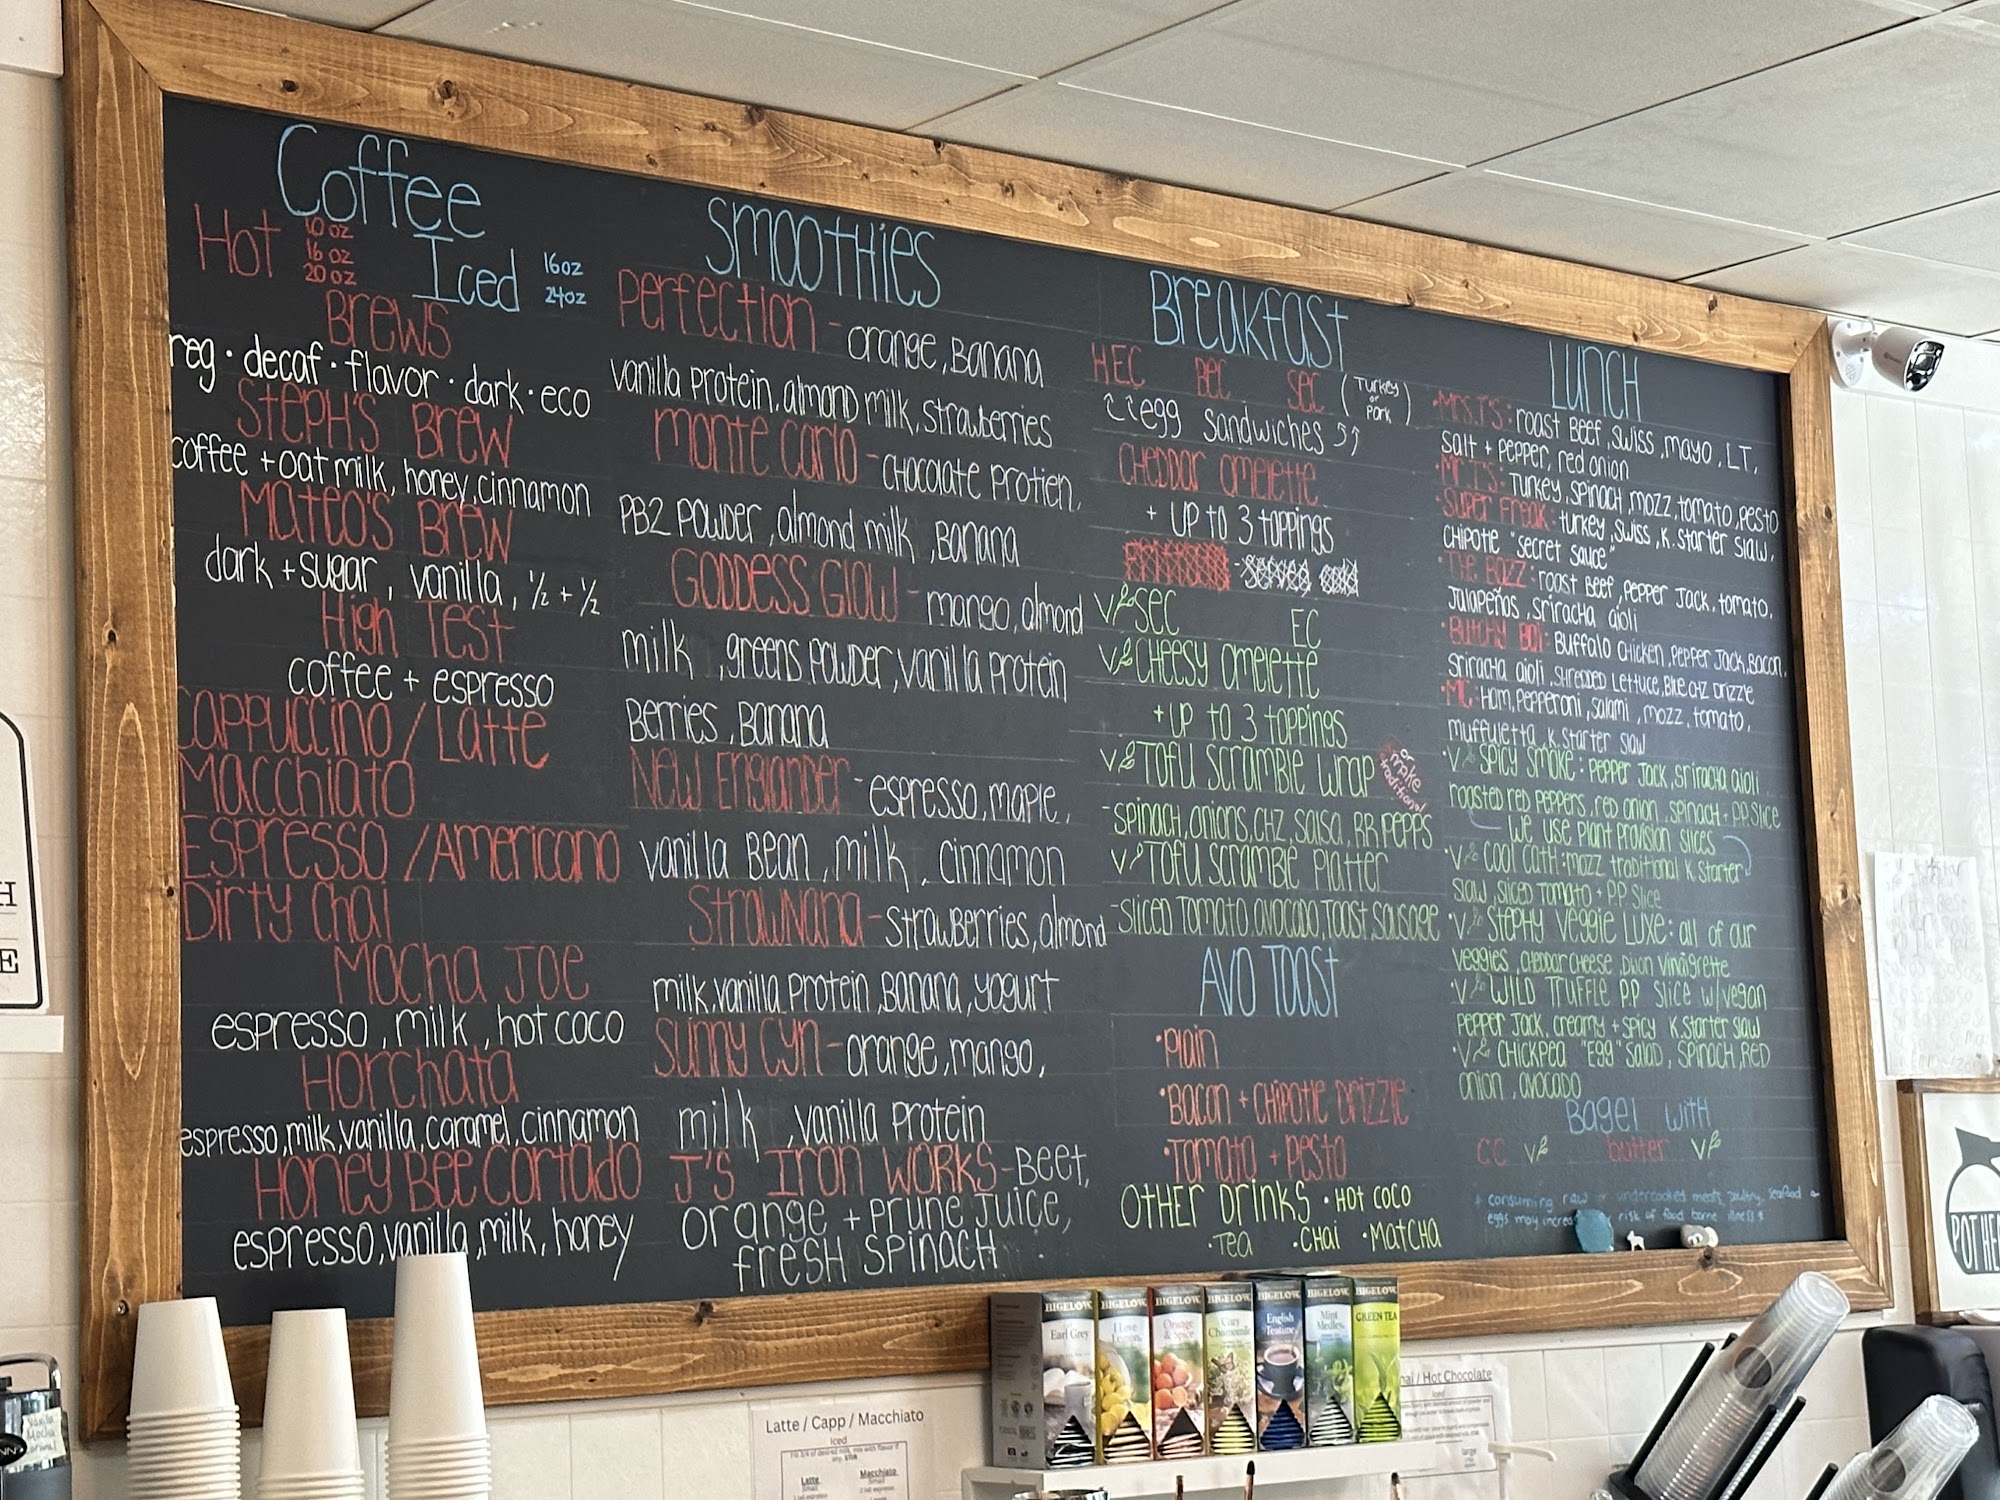 Coffee
Hot 10 oz 16 oz 20 oz
Iced 16oz 24oz
Brews
reg · decaf · flavor · dark · eco
Steph's Brew
coffee + oat milk, honey, cinnamon
Mateo's Brew
dark + sugar, vanilla, ½ + ½
High Test
coffee + espresso
Cappuccino / Latte
Macchiato
Espresso / Americano
Dirty Chai
Mocha Joe
espresso, milk, hot coco
Horchata
espresso, milk, vanilla, caramel, cinnamon
Honey Bee Cortado
espresso, vanilla, milk, honey
Smoothies
Perfection - orange, Banana
vanilla protein, almond milk, strawberries
Monte Carlo - chocolate protien,
PB2 powder, almond milk, Banana
Goddess Glow - mango, almond
milk, greens powder, vanilla protein
Berries, Banana
New Englander - espresso, maple,
vanilla Bean, milk, cinnamon
Strawnana - strawberries, almond
milk, vanilla protein, Banana, yogurt
Sunny Cyn - orange, mango,
milk, vanilla protein
J's Iron Works - Beet,
orange + prune juice,
fresh spinach
Breakfast
HEC BEC SEC (Turkey or Pork)
egg sandwiches
Cheddar Omelette
+ up to 3 toppings
V SEC EC
V Cheesy Omelette
+ up to 3 toppings
V Tofu Scramble Wrap
or make traditional
- spinach, onions, chz, salsa, RR pepps
V Tofu Scramble Platter
- Sliced Tomato, avocado, toast, sausage
Avo Toast
• Plain
• Bacon + Chipotle Drizzle
• Tomato + Pesto
Other Drinks • Hot Coco
• Tea • Chai • Matcha
Lunch
• Mrs. T's: roast Beef, swiss, mayo, LT,
salt + pepper, red onion
• Mr. T's: Turkey, spinach, mozz, tomato, pesto
• Super Freak: turkey, swiss, k. starter slaw,
chipotle "secret sauce"
• The Bozz: roast Beef, pepper Jack, tomato,
Jalapeños, sriracha aioli
• Butchy Boi: Buffalo chicken, pepper Jack, Bacon,
sriracha aioli, shredded lettuce, Blue chz Drizzle
• MC: Ham, pepperoni, salami, mozz, tomato,
muffuletta, k. starter slaw
• V Spicy Smoke: pepper Jack, sriracha aioli
roasted red peppers, red onion, spinach + P.P. Slice
We use Plant Provision slices
• V Cool Cath: mozz traditional k. starter
slaw, sliced tomato + P.P. Slice
• V Stephy Veggie Luxe: all of our
veggies, cheddar cheese, Dijon vinaigrette
• V Wild Truffle P.P. Slice w/vegan
pepper Jack, creamy + spicy k. starter slaw
• V Chickpea "Egg" Salad, spinach, red
onion, avocado
Bagel with
CC V butter V
consuming raw or undercooked meats, poultry, seafood
eggs may risk of food borne illness
BIGELOW BIGELOW BIGELOW BIGELOW BIGELOW BIGELOW
Earl Grey
I Love Lemon
Orange & Spice
Cozy Chamomile
English Teatime
Mint Medley
GREEN TEA
Latte / Capp / Macchiato
Iced
Latte Small
Macchiato Small
Hot Chocolate
Iced